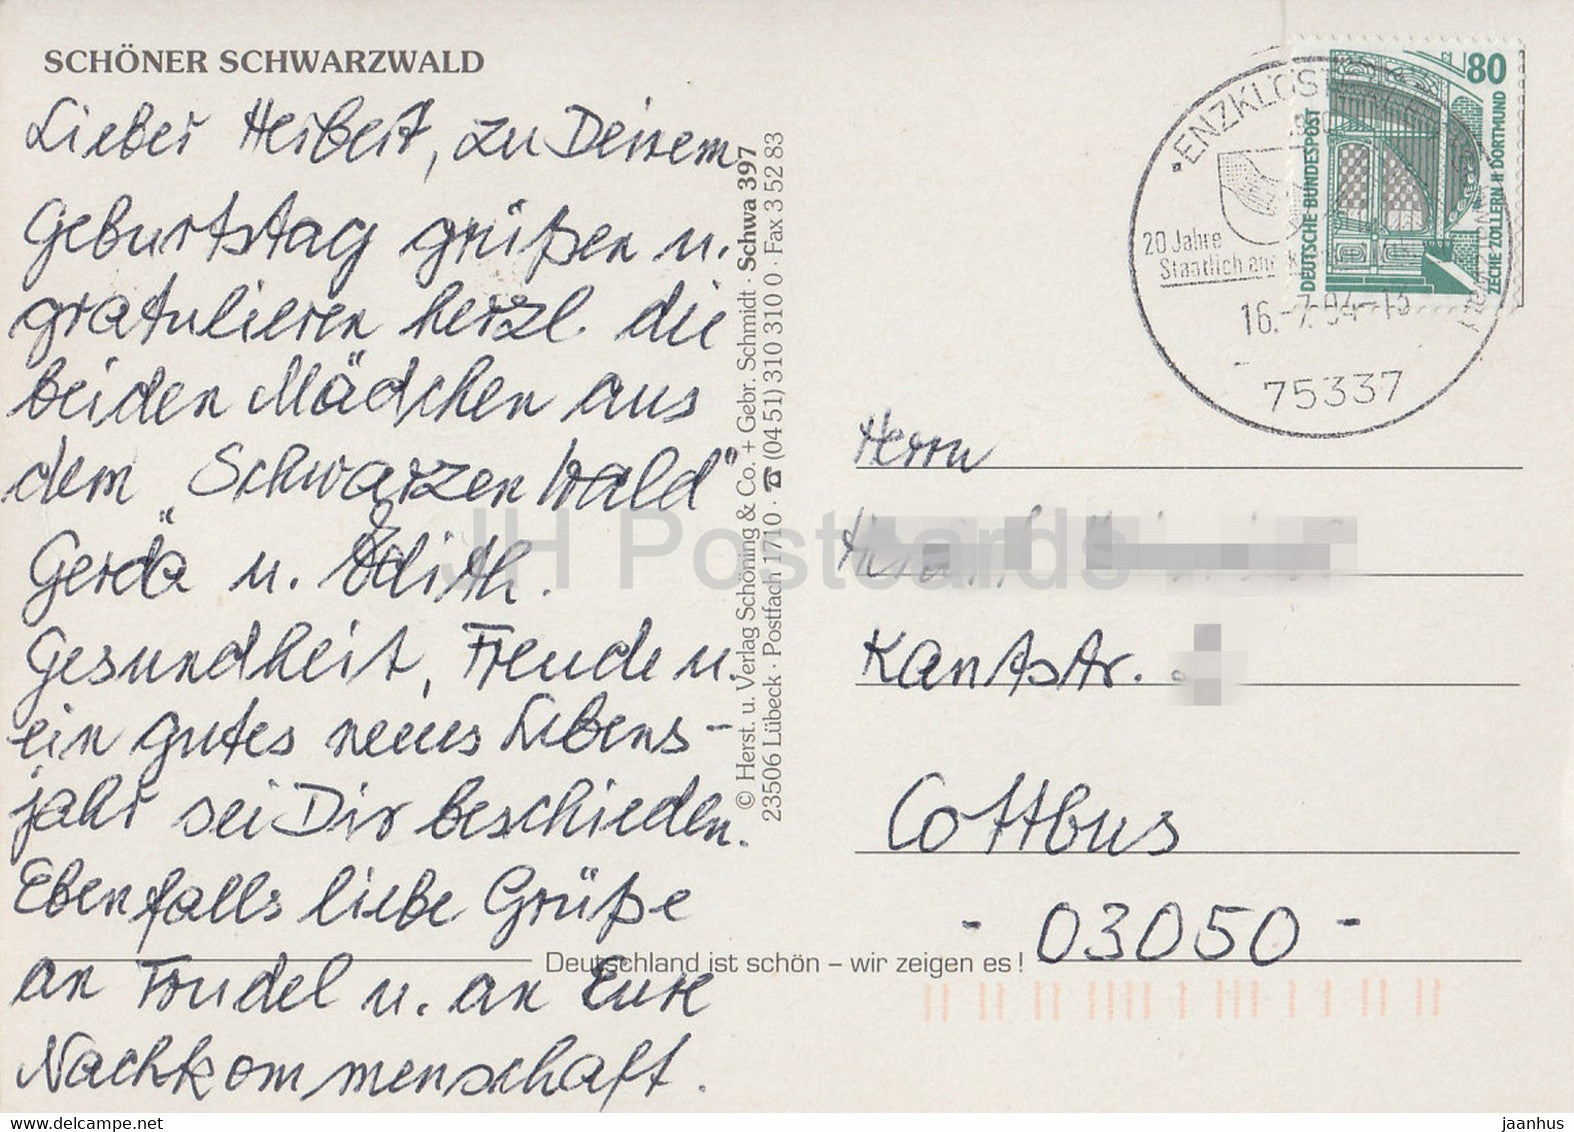 SCHÖNER SCHWARZWALD
Lieber Herbert, zu Deinem
Geburtstag grüßen u.
gratulieren herzl. die
beiden Mädchen aus
dem "Schwarzen Wald"
Gerda u. Edith.
Gesundheit, Freude u.
ein gutes neues Lebens-
jahr sei Dir beschieden.
Ebenfalls liebe Grüße
an Trudel u. an Eure
Nachkommenschaft.
© Herst. u. Verlag Schöning & Co. + Gebr. Schmidt · Schwa 397
23506 Lübeck · Postfach 1710 · ☎ (04 51) 310 310 0 · Fax 3 52 83
Deutschland ist schön – wir zeigen es!
ENZKLÖSTERLE
20 Jahre
Staatlich
16.-7.94-13
75337
80
DEUTSCHE BUNDESPOST
ZECHE ZOLLERN II DORTMUND
Herrn
Kantstr.
Cottbus
- 03050 -
JH Postcards
delcampe.net
jaanhus